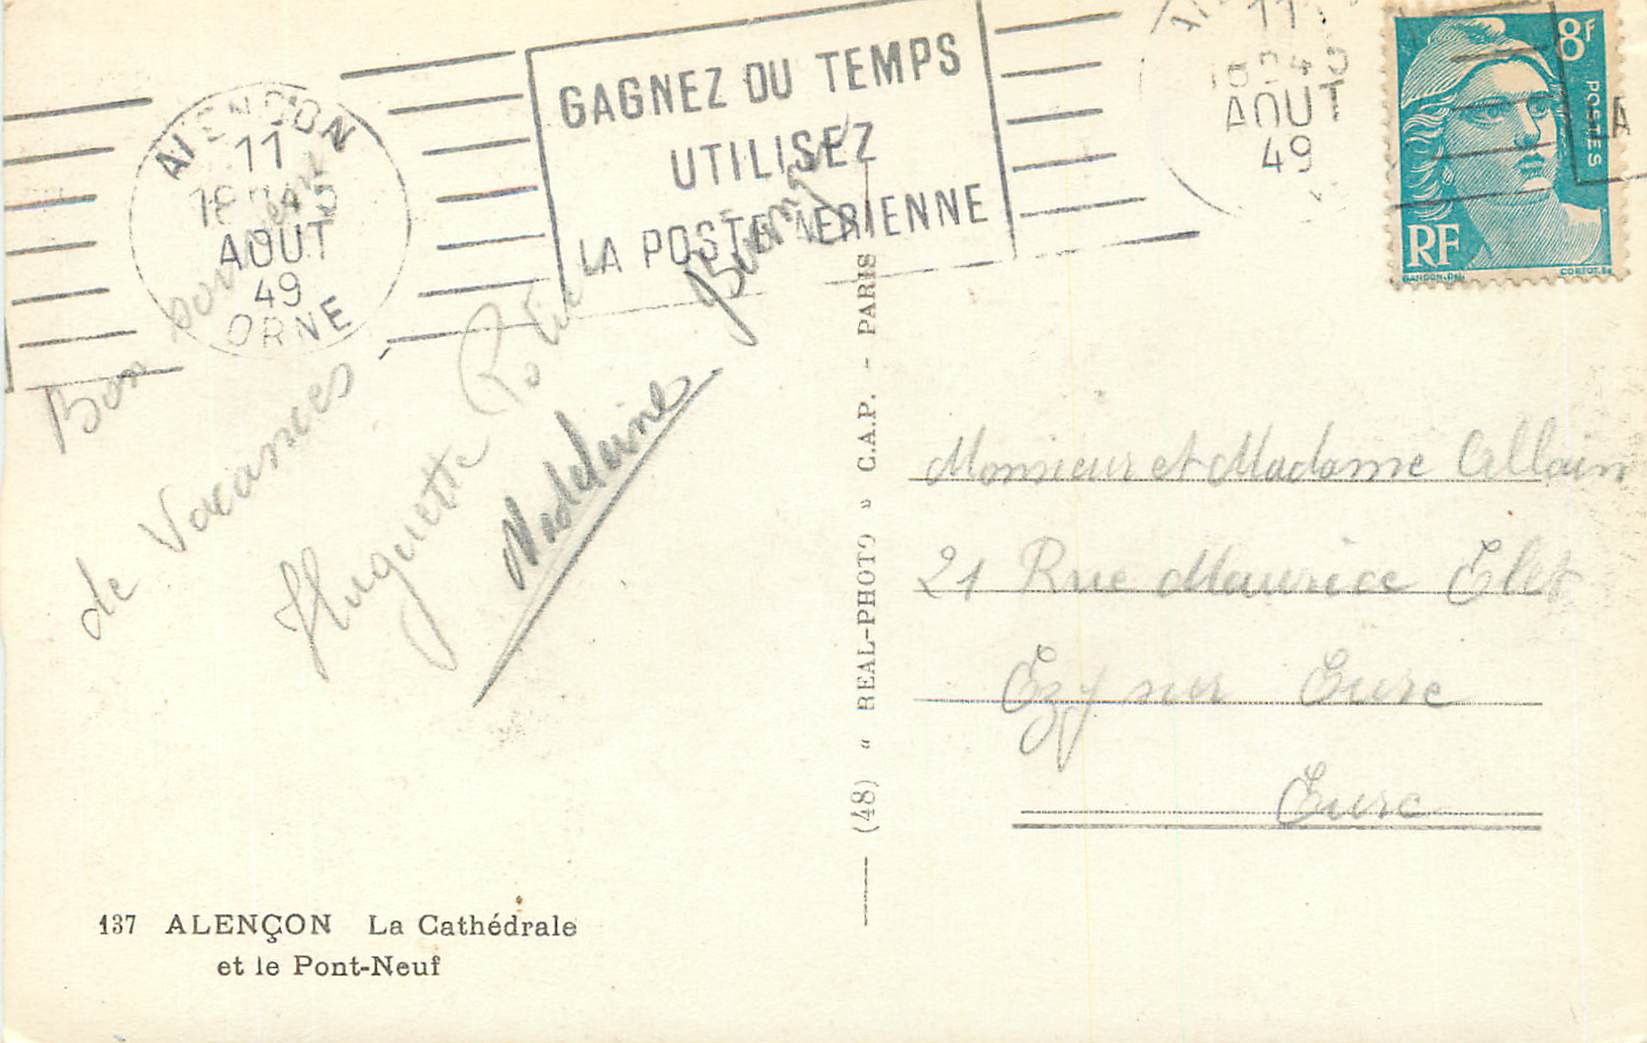 ALENCON
11
18H45
AOUT
49
ORNE
GAGNEZ DU TEMPS
UTILISEZ
LA POSTE AERIENNE
11
AOUT
49
8F
POSTES
RF
GANDON.Del.
CORTOT.Sc
A
Bon souvenir
de Vacances
Huguette
Madeleine
Monsieur et Madame Allain
21 Rue Maurice Elet
Ezy sur Eure
Eure
(48) « REAL-PHOTO » C.A.P. - PARIS
137 ALENÇON La Cathédrale
et le Pont-Neuf